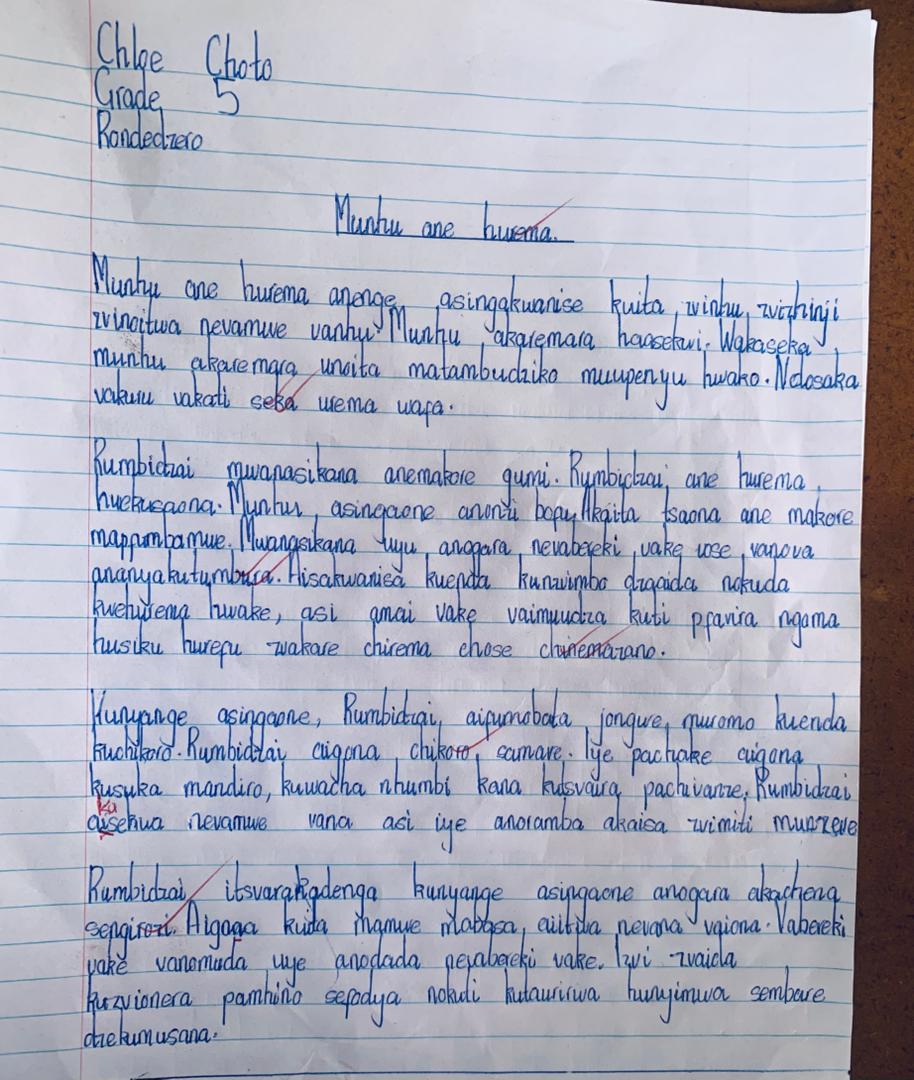 Chloe Choto
Grade 5
Rondedzero
Munhu ane hurema.
Munhu ane hurema anenge asingakwanise kuita zvinhu zvizhinji
zvinoitwa nevamwe vanhu. Munhu akaremara haasekwi. Wakaseka
munhu akaremara unoita matambudziko muupenyu hwako. Ndosaka
vakuru vakati seka urema wafa.
Rumbidzai mwanasikana anemakore gumi. Rumbidzai ane hurema
hwekusaona. Munhu asingaone anonzi bopu. Akaita tsaona ane makore
mapfumbamwe. Mwanasikana uyu anogara nevabereki vake vose vanova
ananyakutumbura. Aisakwanisa kuenda kunzvimbo dzaaida nokuda
kwehurema hwake, asi amai vake vaimuudza kuti pfavira ngoma
husiku hurefu zvakare chirema chose chinemazano.
Kunyange asingaone, Rumbidzai aifumobata jongwe muromo kuenda
kuchikoro. Rumbidzai aigona chikoro samare. Iye pachake aigona
kusuka mandiro, kuwacha nhumbi kana kutsvaira pachivanze. Rumbidzai
ku
aisekwa nevamwe vana asi iye anoramba akaisa zvimiti munzeve
Rumbidzai itsvarakadenga kunyange asingaone anogara akachena
sengirozi. Aigona kuita mamwe mabasa, aiitwa nevana vaiona. Vabereki
vake vanomuda uye anodada nevabereki vake. Izvi zvaida
kuzvionera pamhino sefodya nokuti kutaurirwa hunyimwa sembare
dzekumusana.